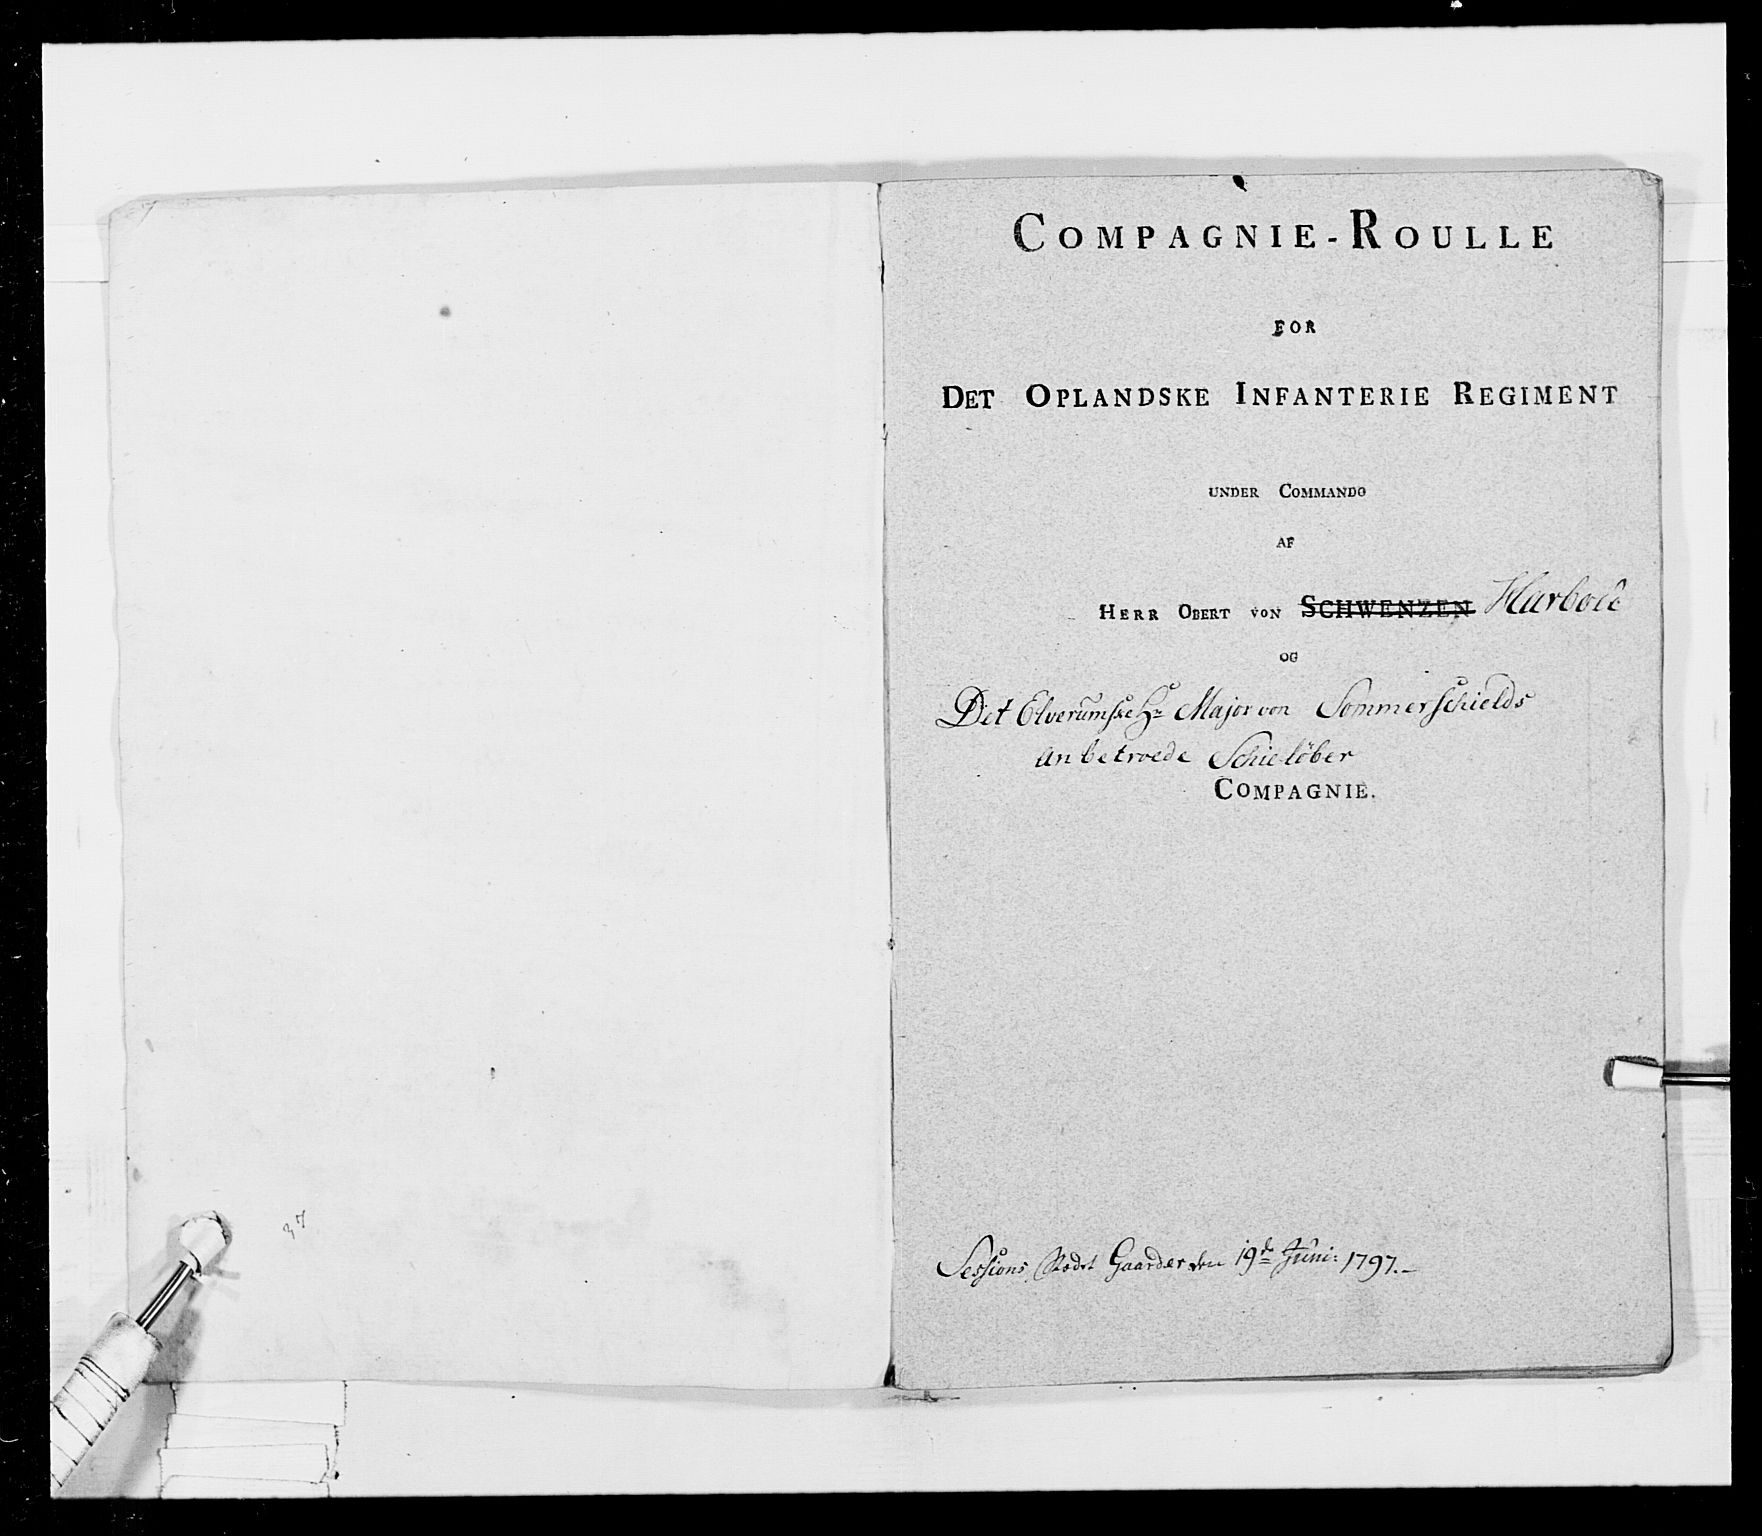 37
COMPAGNIE-ROULLE
FOR
DET OPLANDSKE INFANTERIE REGIMENT
UNDER COMMANDO
AF
HERR OBERT VON SCHWENZEN Harboe
OG
Det Elverumske Hr Major von Sommerschields
anbetroede Schielöber
COMPAGNIE.
Sessions Stædet Gaarder den 19de Juni: 1797.-